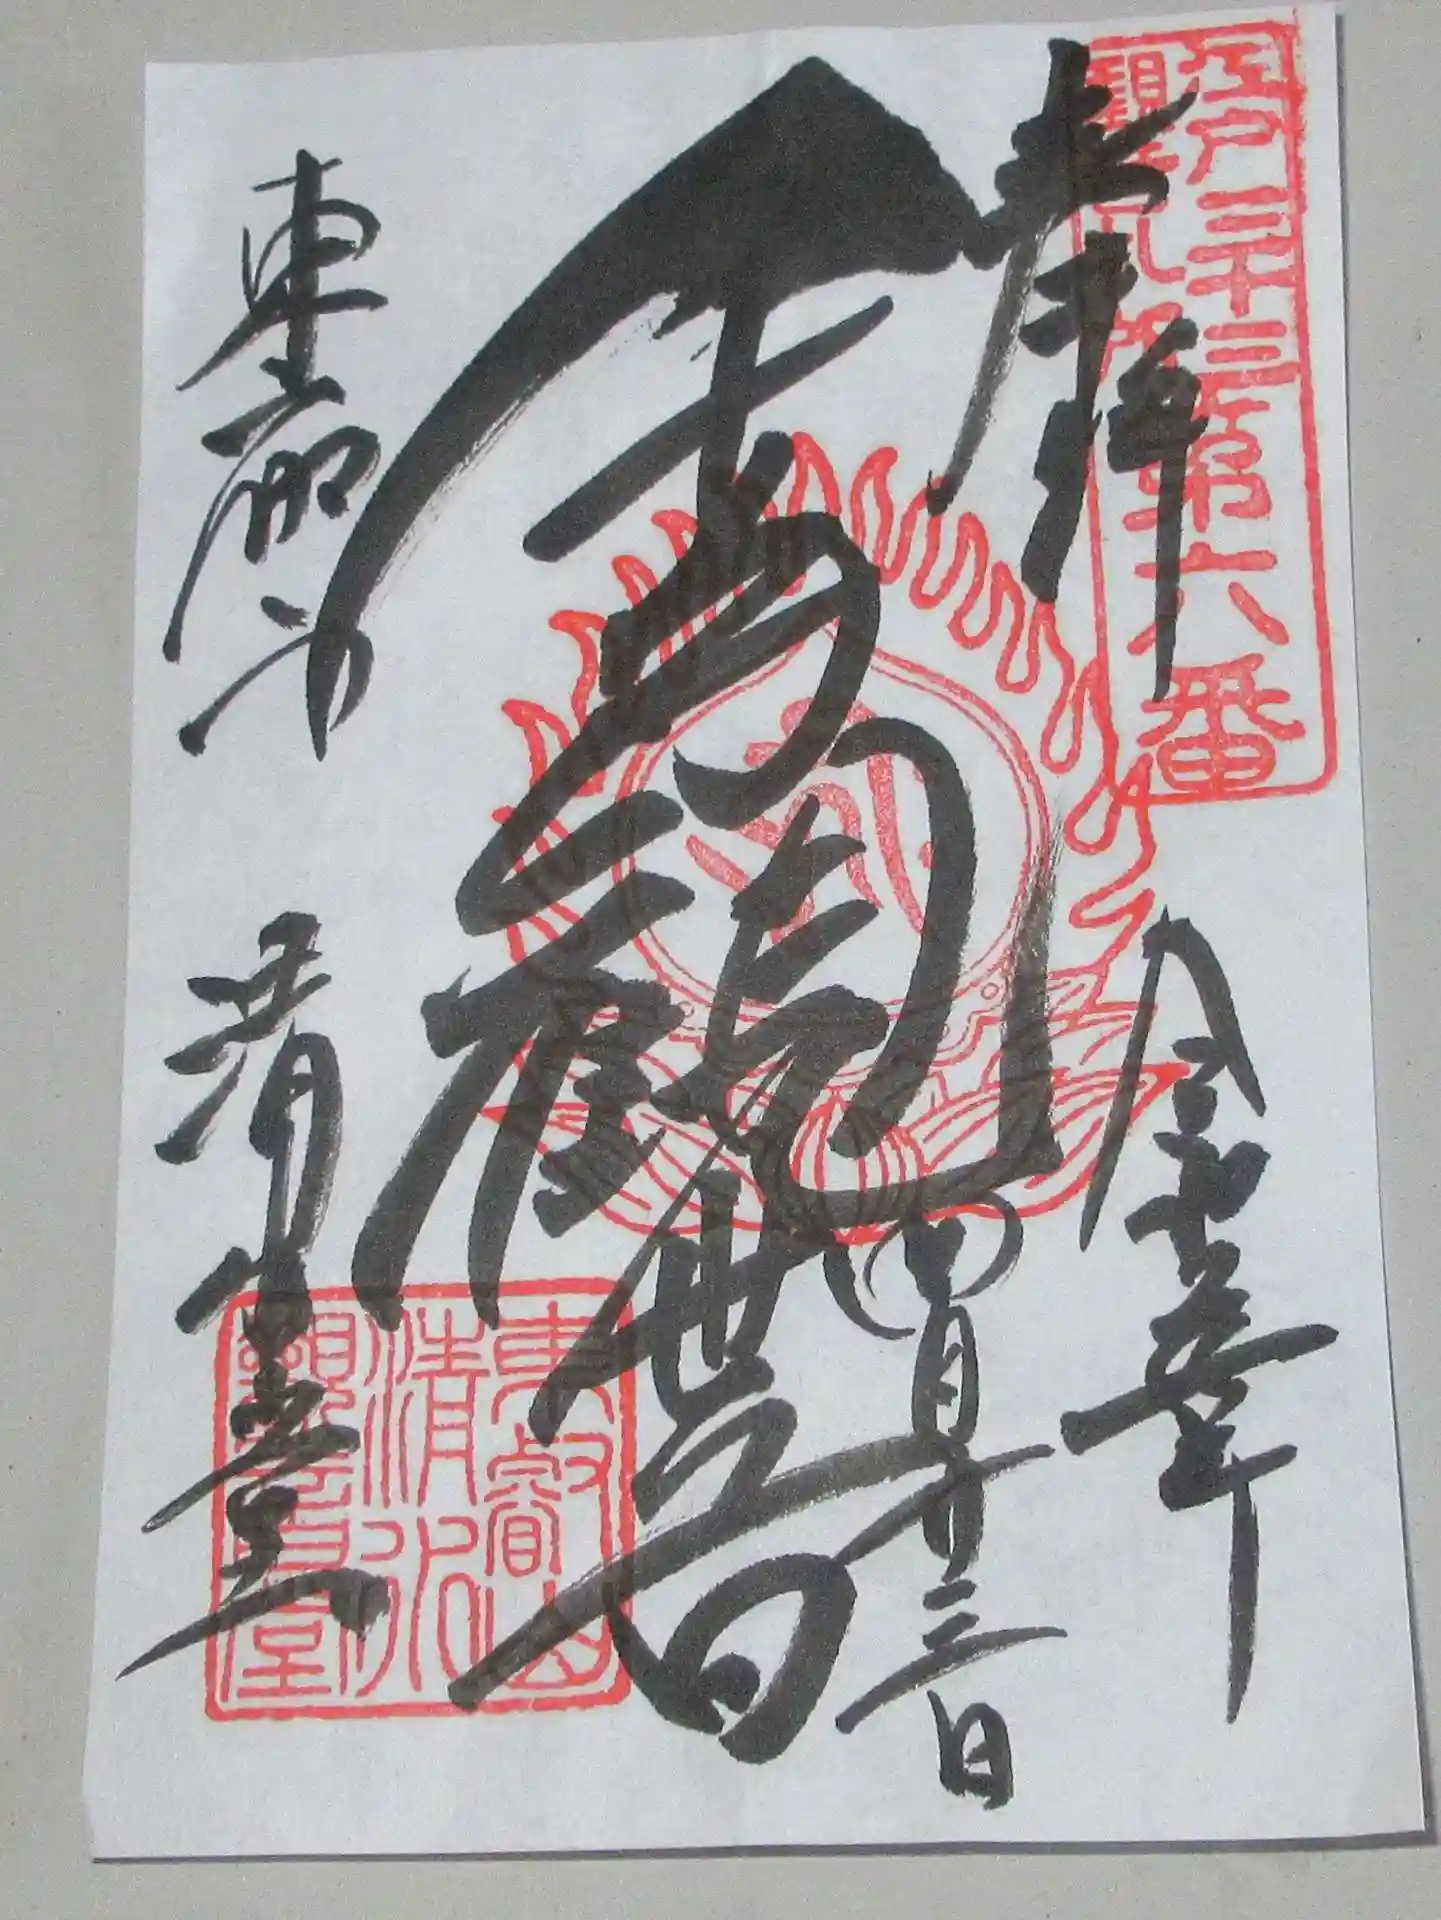 奉拝
令和五年
四月廿三日
江戸三十三所第六番
観世音
東叡山
清水堂
東叡山
清水
観音堂